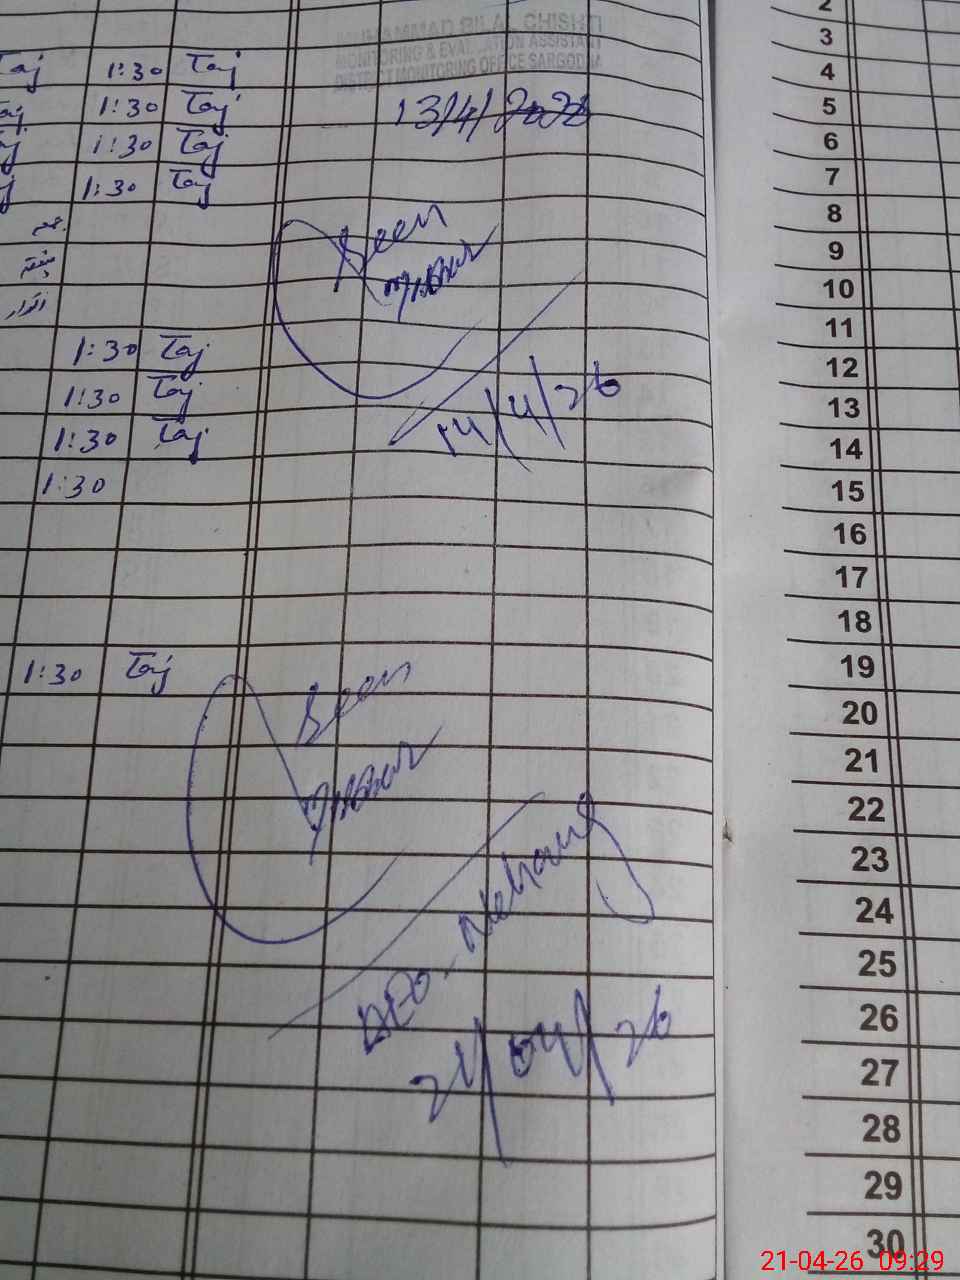 MUHAMMAD BILAL CHISHTI
MONITORING & EVALUATION ASSISTANT
DISTRICT MONITORING OFFICE SARGODHA
Taj 1:30 Taj
1:30 Taj
13/4/2026
1:30 Taj
1:30 Taj
ہفتہ
اتوار
Seen
1:30 Taj
1:30 Taj
14/4/26
1:30 Taj
1:30
1:30 Taj
Seen
21/04/26
2
3
4
5
6
7
8
9
10
11
12
13
14
15
16
17
18
19
20
21
22
23
24
25
26
27
28
29
30
21-04-26 09:29